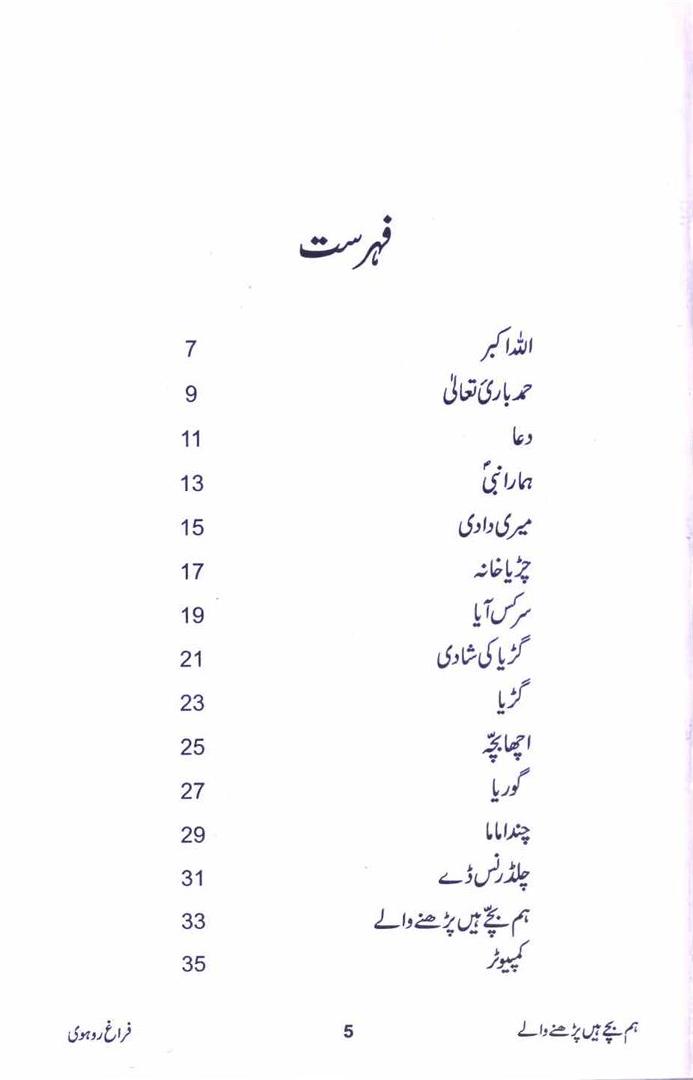 فہرست
اللہ اکبر 7
حمد باریٔ تعالیٰ 9
دعا 11
ہمارا نبیؐ 13
میری دادی 15
چڑیا خانہ 17
سرکس آیا 19
گڑیا کی شادی 21
گڑیا 23
اچھا بچّہ 25
گوریا 27
چندا ماما 29
چلڈرنس ڈے 31
ہم بچّے ہیں پڑھنے والے 33
کمپیوٹر 35
ہم بچّے ہیں پڑھنے والے 5 فراغ روہوی